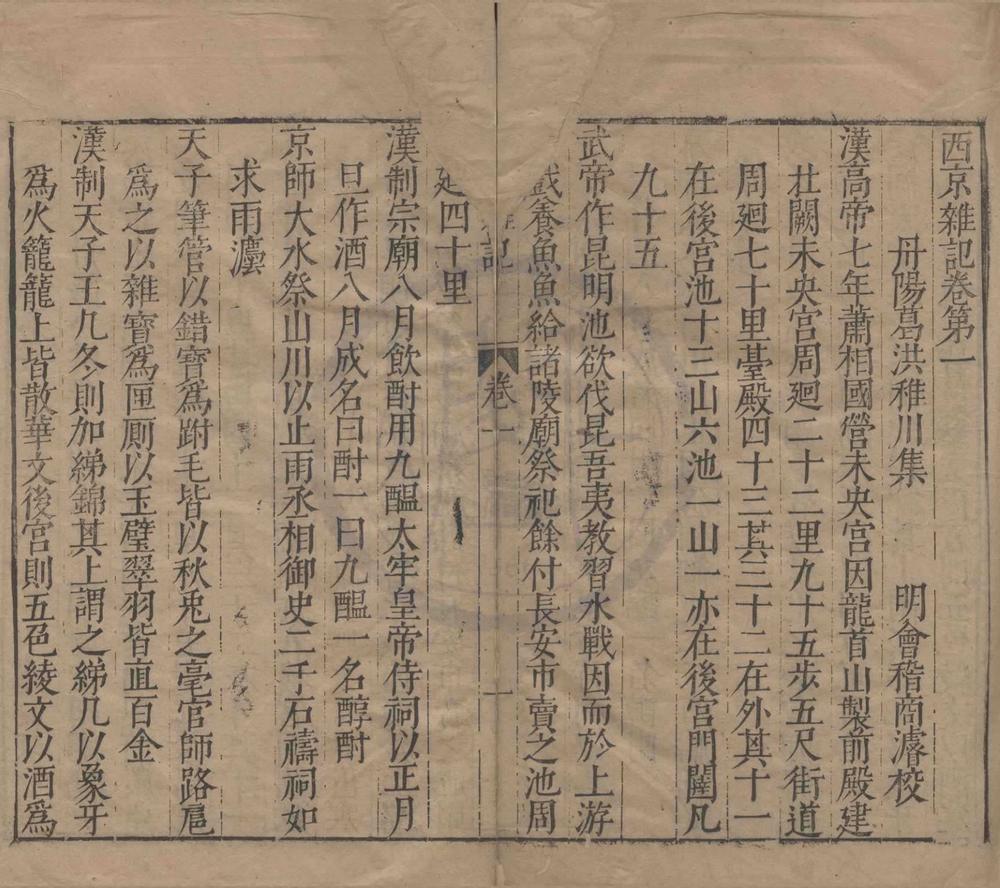 西京雜記卷第一
丹陽葛洪稚川集　明會稽商濬校
漢高帝七年蕭相國營未央宮因龍首山製前殿建
北闕未央宮周廻二十二里九十五步五尺街道
周廻七十里臺殿四十三其三十二在外其十一
在後宮池十三山六池一山一亦在後宮門闥凡
九十五
武帝作昆明池欲伐昆吾夷教習水戰因而於上游
戲養魚魚給諸陵廟祭祀餘付長安市賣之池周
記
卷一
一
廻四十里
漢制宗廟八月飲酎用九醞太牢皇帝侍祠以正月
旦作酒八月成名曰酎一曰九醞一名醇酎
京師大水祭山川以止雨丞相御史二千石禱祠如
求雨灋
天子筆管以錯寶爲跗毛皆以秋兎之毫官師路扈
爲之以雜寶爲匣厠以玉璧翠羽皆直百金
漢制天子玉几冬則加綈錦其上謂之綈几以象牙
爲火籠籠上皆散華文後宮則五色綾文以酒爲